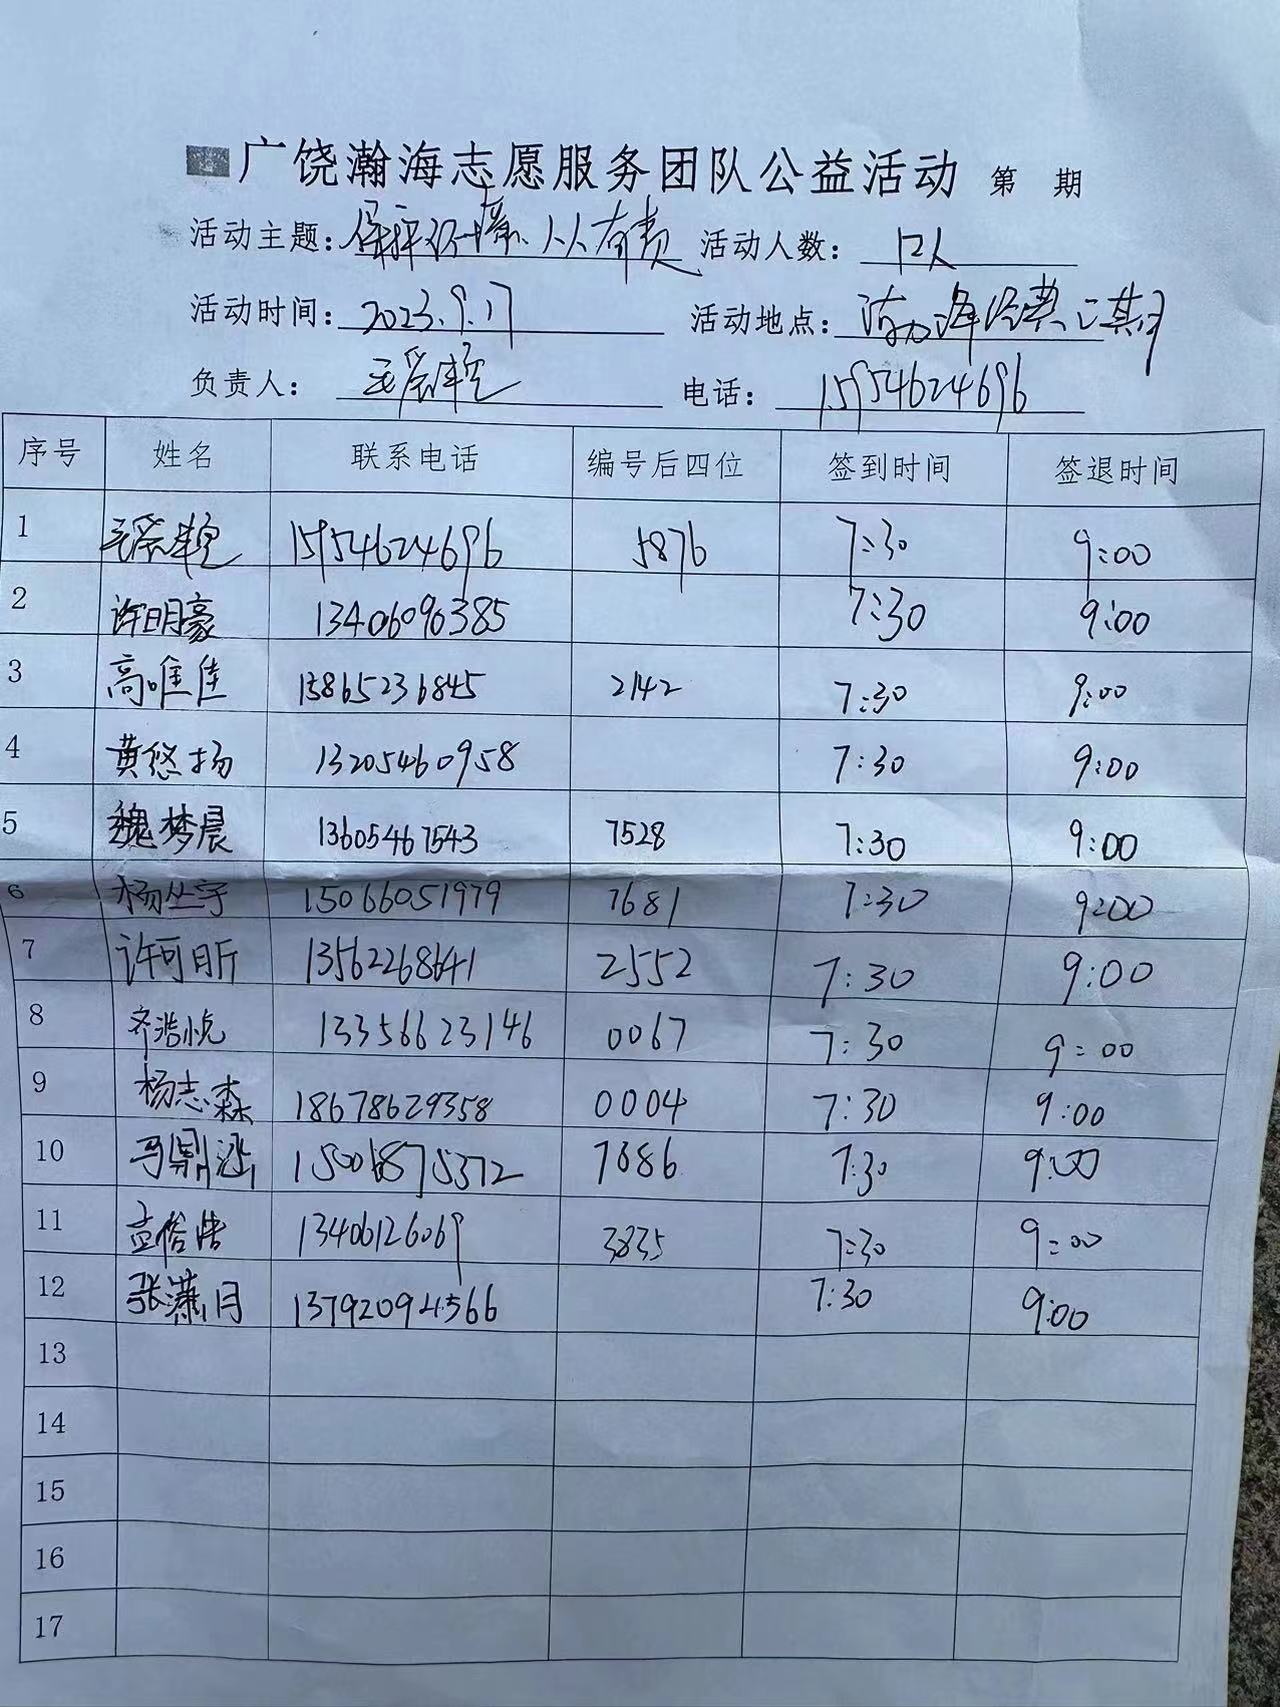 广饶瀚海志愿服务团队公益活动 第 期
活动主题: 保护环境、人人有责 活动人数: 12人
活动时间: 2023.9.17 活动地点:
负责人: 电话: 15954624696
序号 姓名 联系电话 编号后四位 签到时间 签退时间
1 15954624696 5876 7:30 9:00
2 许明豪 13406090385 7:30 9:00
3 高唯佳 13865236845 2142 7:30 9:00
4 黄悠扬 13205460958 7:30 9:00
5 魏梦晨 13605467543 7528 7:30 9:00
6 杨 宇 15066051979 7681 7:30 9:00
7 许可昕 13562268641 2552 7:30 9:00
8 齐浩悦 13356623146 0067 7:30 9:00
9 杨志森 18678629358 0004 7:30 9:00
10 马鼎 15006875372 7386 7:30 9:00
11 孟俗浩 13406126069 3835 7:30 9:00
12 张潇月 13792094566 7:30 9:00
13
14
15
16
17